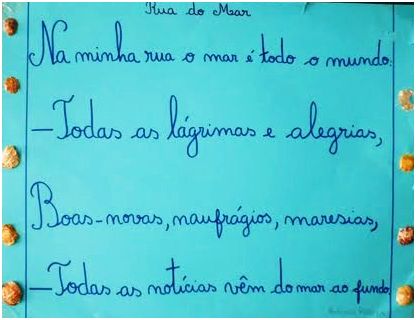 Rua do Mar
Na minha rua o mar é todo o mundo:
—Todas as lágrimas e alegrias,
Boas-novas, naufrágios, maresias,
—Todas as notícias vêm do mar ao fundo